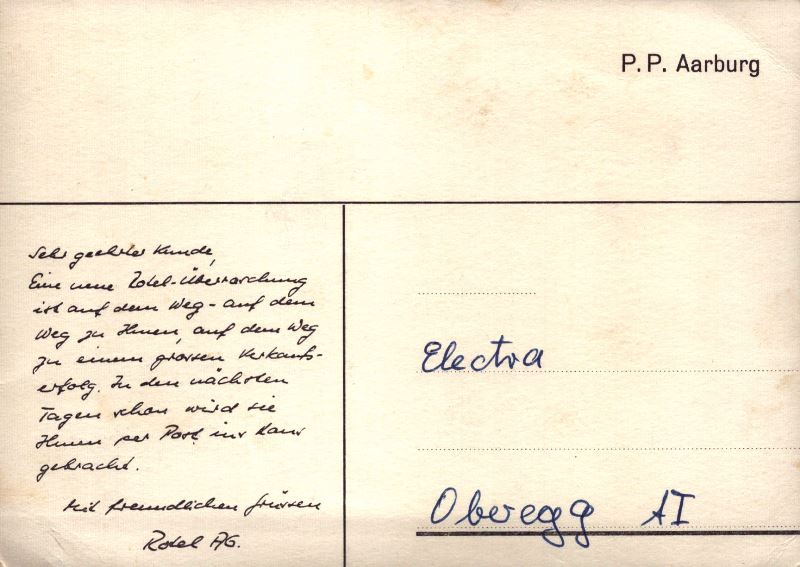 P.P. Aarburg
Sehr geehrter Kunde,
Eine neue Rotel-Überraschung
ist auf dem Weg - auf dem
Weg zu Ihnen, auf dem Weg
zu einem grossen Verkaufs-
erfolg. In den nächsten
Tagen schon wird sie
Ihnen per Post ins Haus
gebracht.
Mit freundlichen Grüssen
Rotel AG.
Electra
Oberegg AI